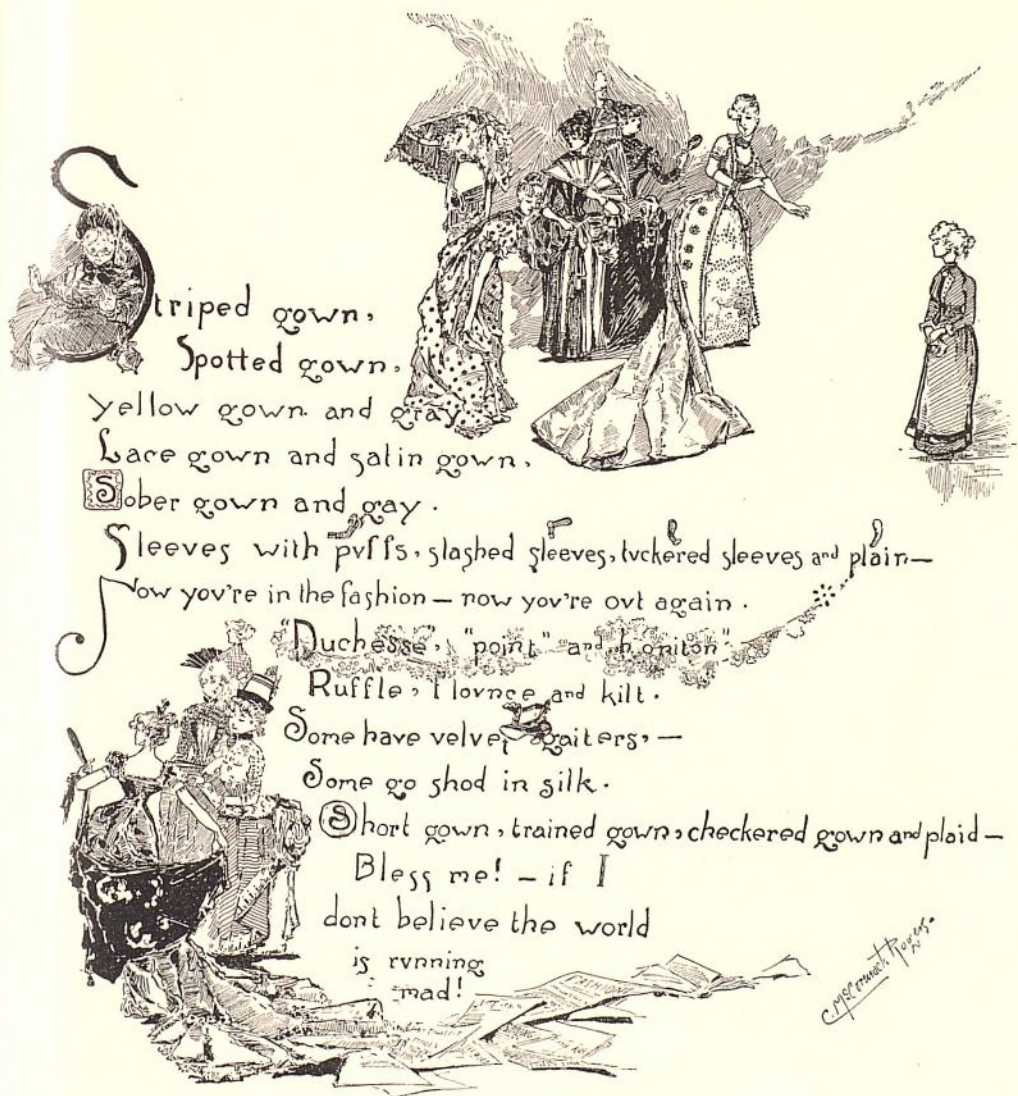 Striped gown,
Spotted gown,
Yellow gown and gray
Lace gown and satin gown,
Sober gown and gay.
Sleeves with puffs, slashed sleeves, tuckered sleeves and plain—
Now you're in the fashion — now you're out again.
"Duchesse", "point" and honiton"
Ruffle, flounce and kilt.
Some have velvet gaiters, —
Some go shod in silk.
Short gown, trained gown, checkered gown and plaid—
Bless me! — if I
dont believe the world
is running
mad!
C. McCormack Rogers